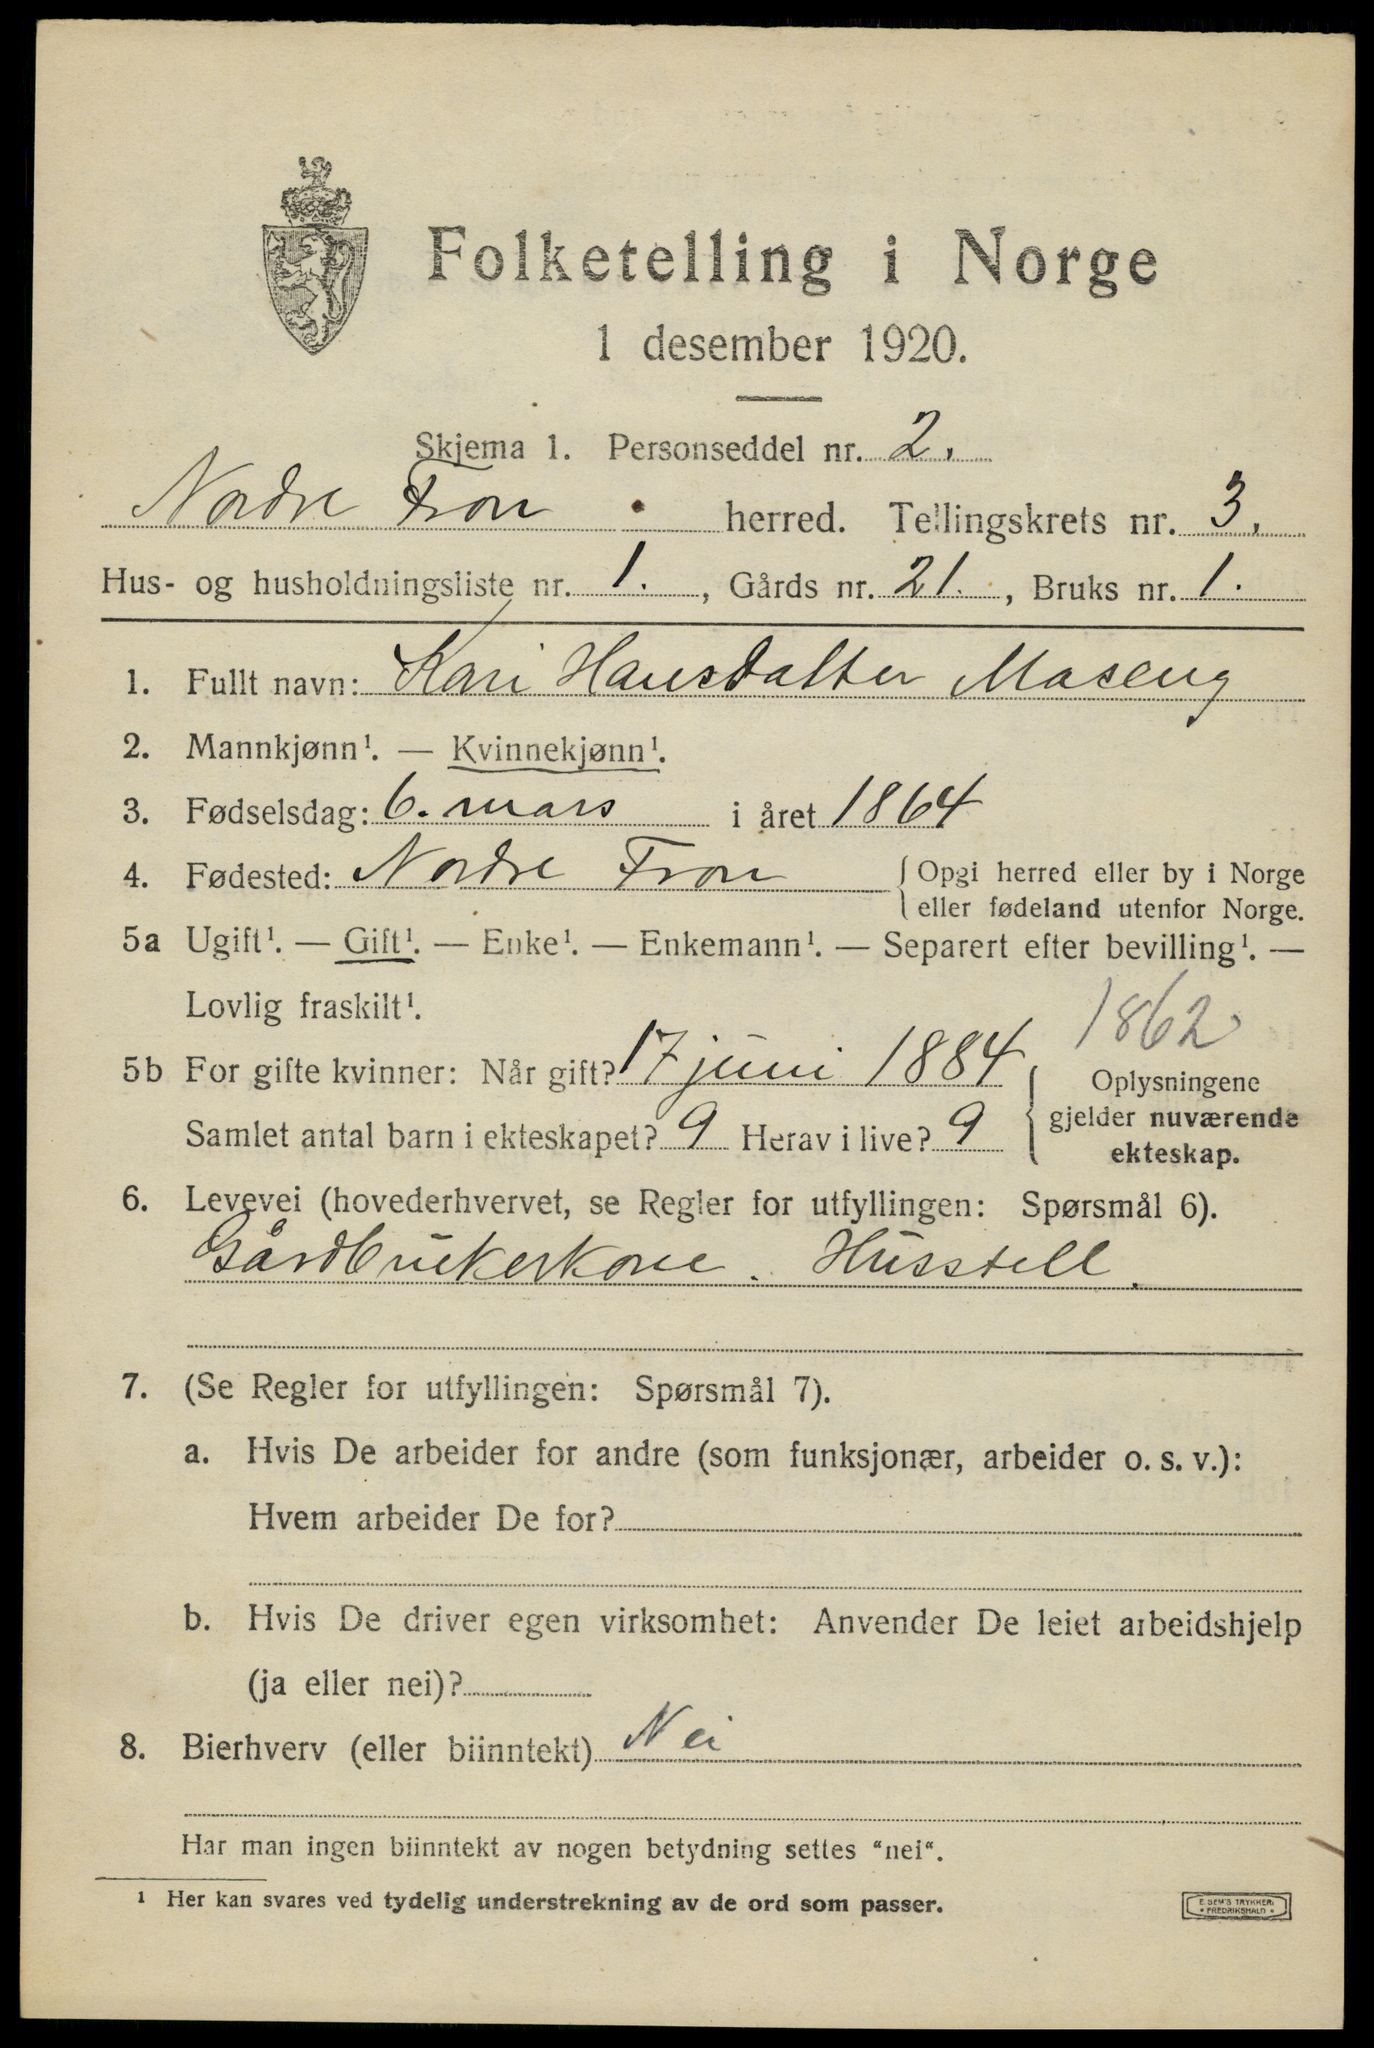 Folketelling i Norge
1 desember 1920.
Skjema 1. Personseddel nr. 2.
Nordre Fron herred. Tellingskrets nr. 3.
Hus- og husholdningsliste nr. 1. , Gårds nr. 21. , Bruks nr. 1.
1. Fullt navn: Kari Hansdatter Maseng
2. Mannkjønn¹. — Kvinnekjønn¹.
3. Fødselsdag: 6. mars i året 1864
4. Fødested: Nordre Fron { Opgi herred eller by i Norge
eller fødeland utenfor Norge.
5a Ugift¹. — Gift¹. — Enke¹. — Enkemann¹. — Separert efter bevilling¹. —
Lovlig fraskilt¹.
1862
5b For gifte kvinner: Når gift? 17 juni 1884
Samlet antal barn i ekteskapet? 9 Herav i live? 9
{ Oplysningene
gjelder nuværende
ekteskap.
6. Levevei (hovederhvervet, se Regler for utfyllingen: Spørsmål 6).
Gårdbrukerkone. Husstell.
7. (Se Regler for utfyllingen: Spørsmål 7).
a. Hvis De arbeider for andre (som funksjonær, arbeider o. s. v.):
Hvem arbeider De for?
b. Hvis De driver egen virksomhet: Anvender De leiet arbeidshjelp
(ja eller nei)?
8. Bierhverv (eller biinntekt) Nei
Har man ingen biinntekt av nogen betydning settes "nei".
¹ Her kan svares ved tydelig understrekning av de ord som passer.
E. SEM'S TRYKKERI
• FREDRIKSHALD •